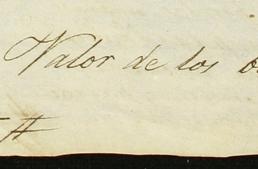 Valor de los
#